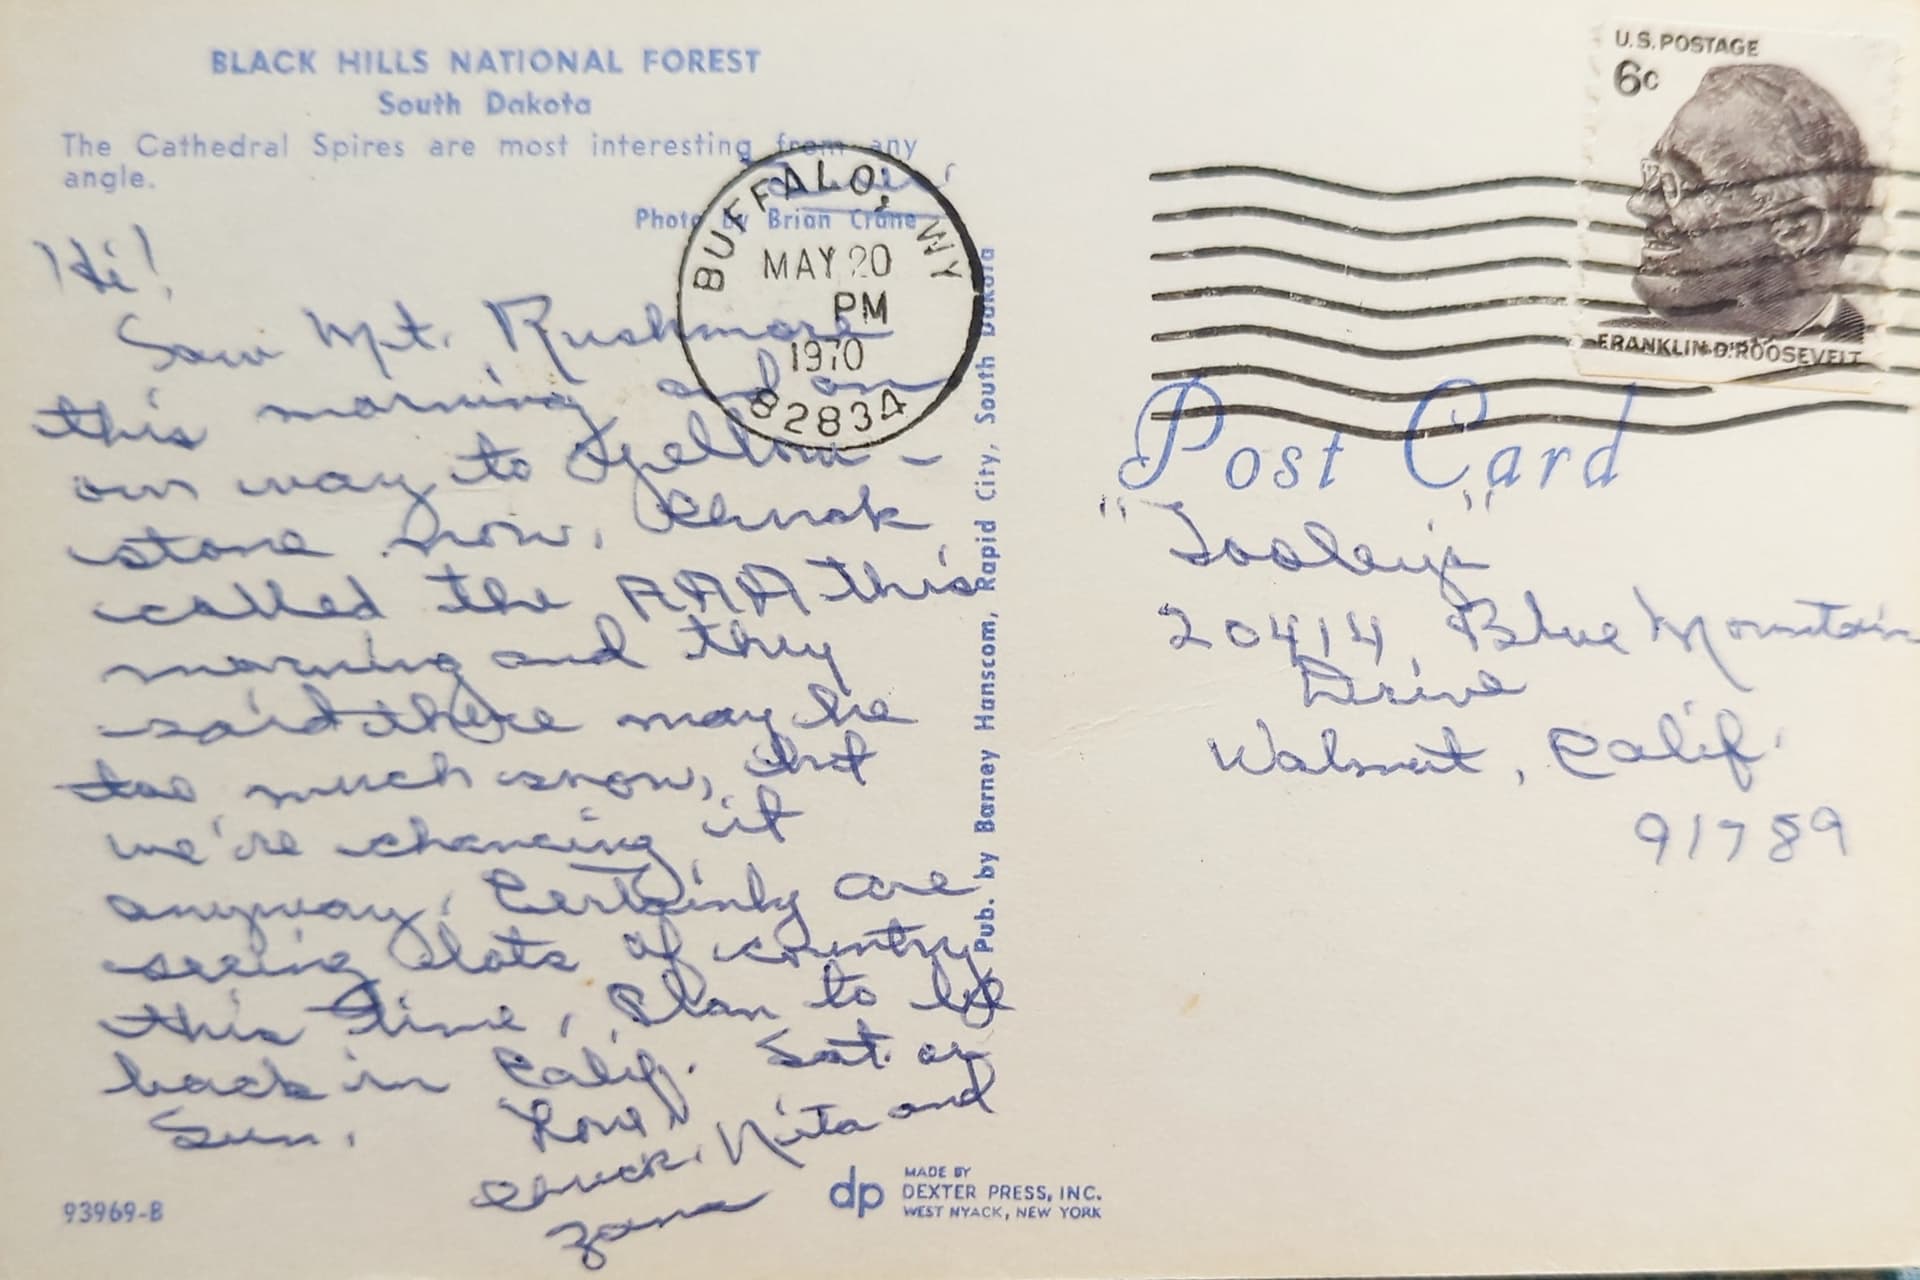 BLACK HILLS NATIONAL FOREST
South Dakota
The Cathedral Spires are most interesting from any
angle.
Photo by Brian Crane
Hi!
Saw Mt. Rushmore
this morning and on
our way to Yellow-
stone now. Chuck
called the AAA this
morning and they
said there may be
too much snow, but
we're chancing it
anyway. Certainly are
seeing lots of country
this time. Plan to be
back in Calif. Sat. or
Sun. Love,
Chuck, Nita and
Zana
93969-B
dp
MADE BY
DEXTER PRESS, INC.
WEST NYACK, NEW YORK
Pub. by Barney Hanscom, Rapid City, South Dakota
BUFFALO, WY
MAY 20
PM
1970
82834
U.S. POSTAGE
6c
FRANKLIN D. ROOSEVELT
Post Card
"Tooley's"
20414 Blue Mountain
Drive
Walnut, Calif.
91789